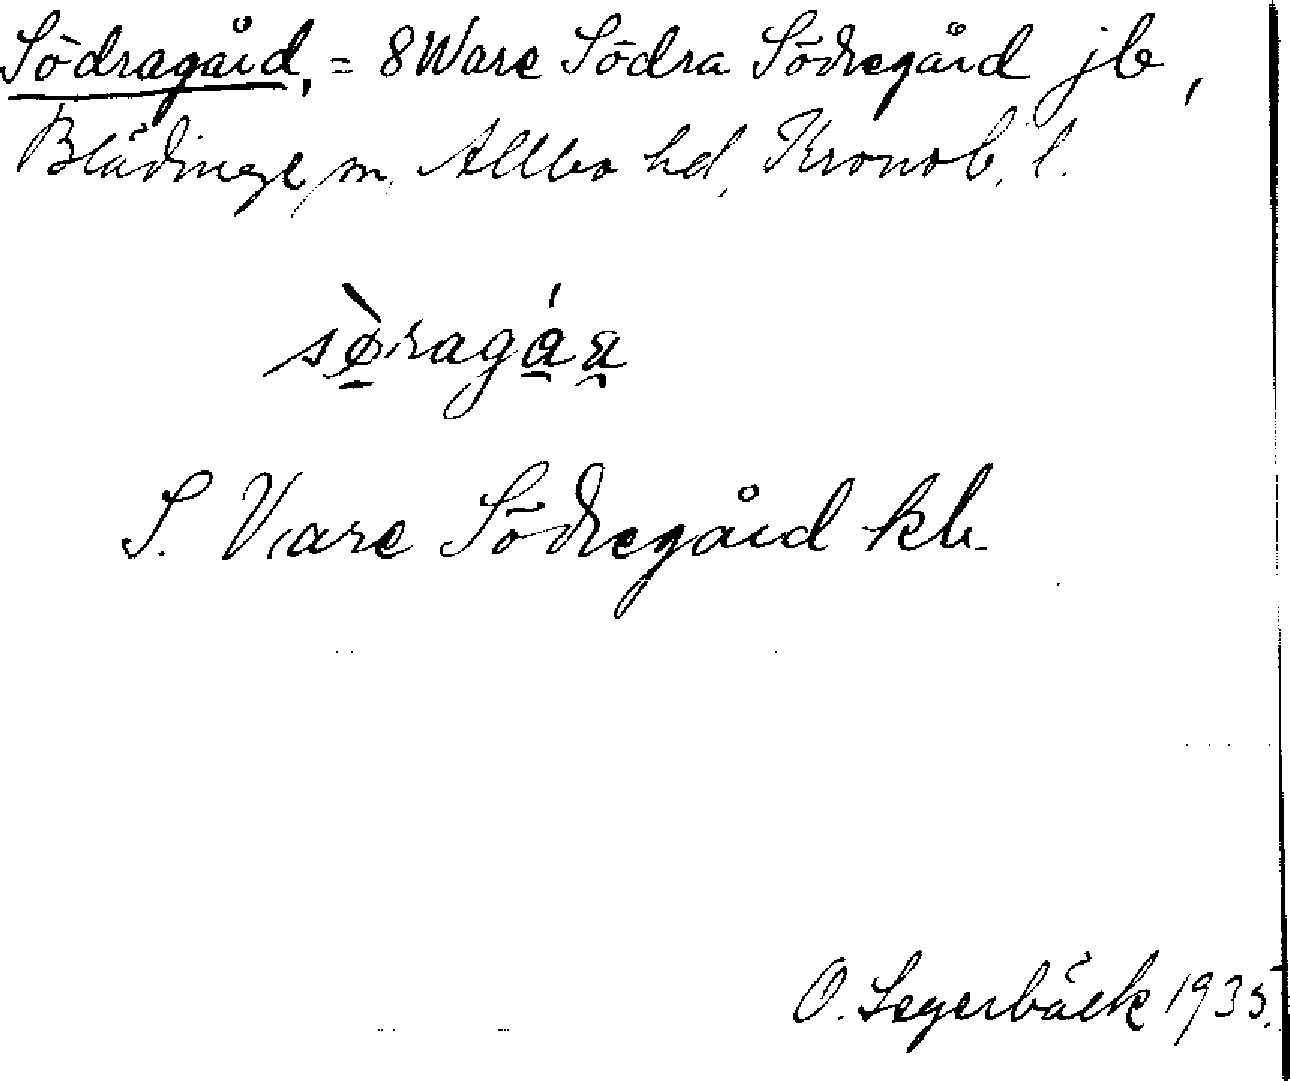 Södragård, = 8 Ware Södra Södregård jb,
Blädinge sn, Allbo hd, Kronob. l.
sø̀ragáa
S. Vare Södregård kb.
O. Segerbäck 1935.